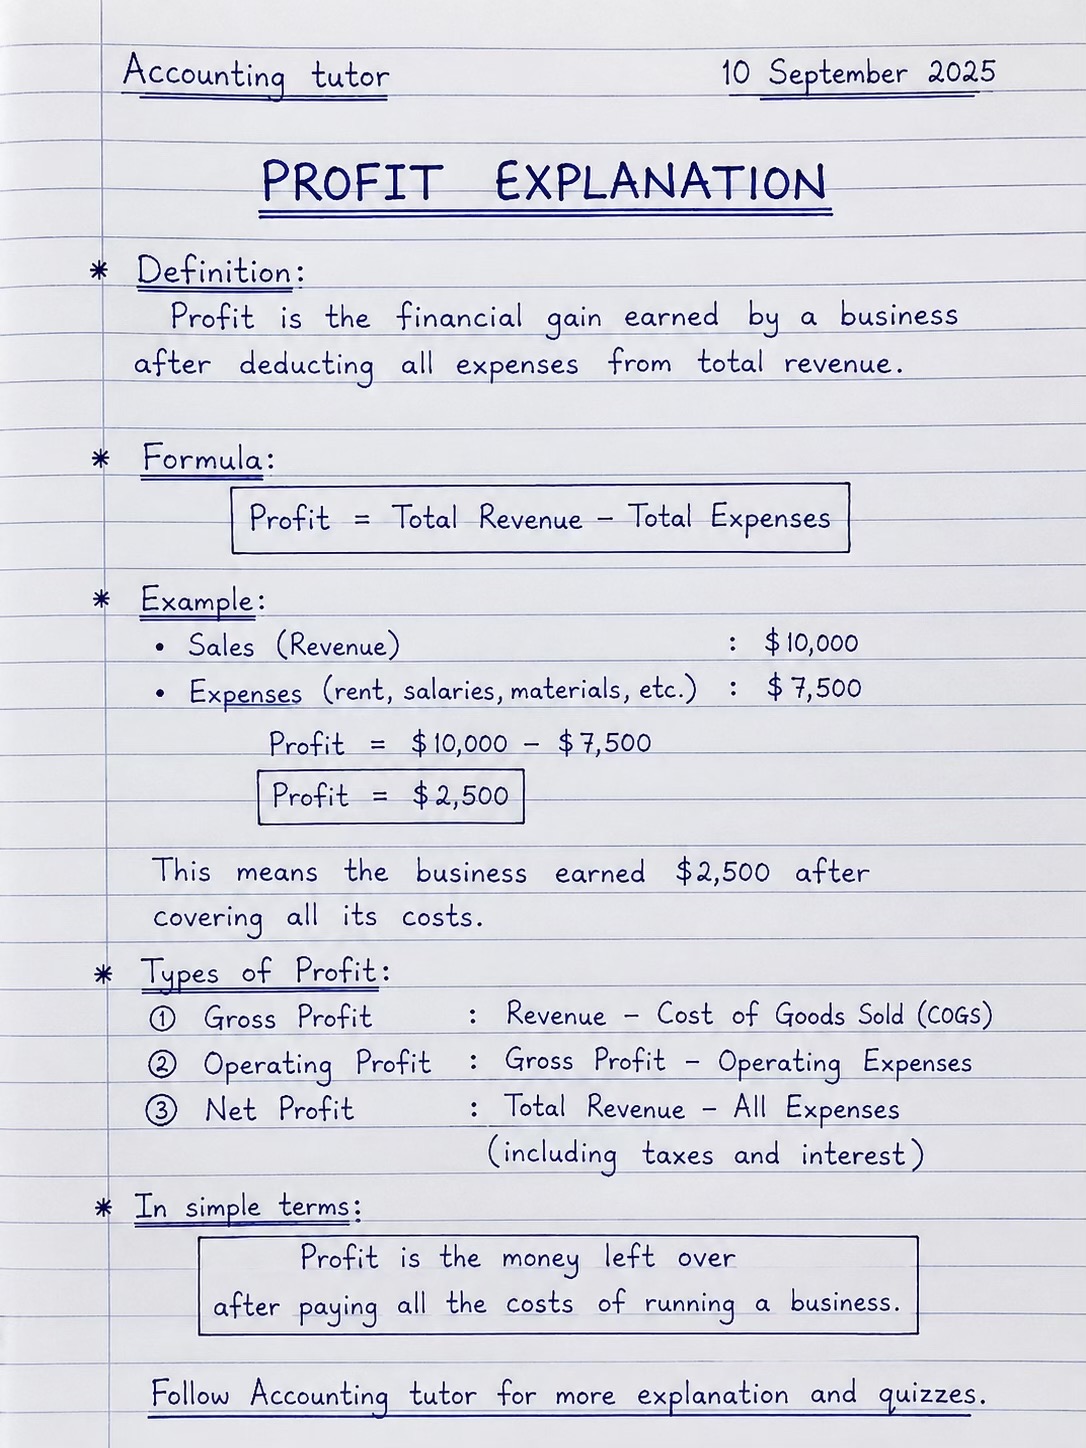 Accounting tutor 10 September 2025
PROFIT EXPLANATION
* Definition:
Profit is the financial gain earned by a business
after deducting all expenses from total revenue.
* Formula:
Profit = Total Revenue – Total Expenses
* Example:
• Sales (Revenue) : $10,000
• Expenses (rent, salaries, materials, etc.) : $7,500
Profit = $10,000 – $7,500
Profit = $2,500
This means the business earned $2,500 after
covering all its costs.
* Types of Profit:
① Gross Profit : Revenue – Cost of Goods Sold (COGS)
② Operating Profit : Gross Profit – Operating Expenses
③ Net Profit : Total Revenue – All Expenses
(including taxes and interest)
* In simple terms:
Profit is the money left over
after paying all the costs of running a business.
Follow Accounting tutor for more explanation and quizzes.